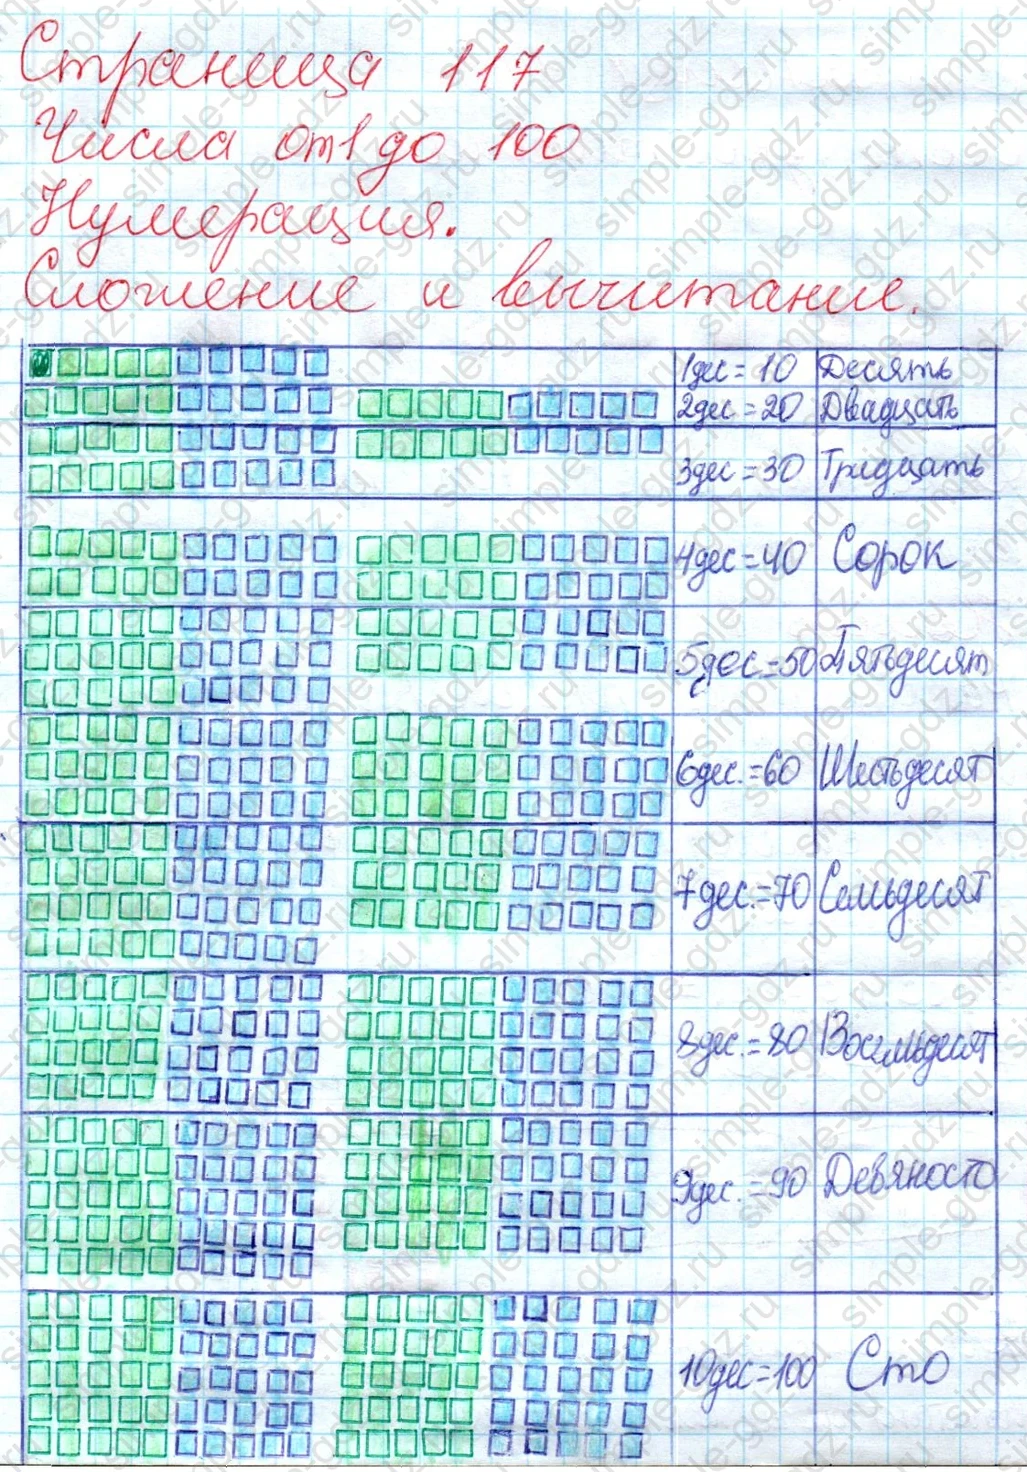 Страница 117
Числа от 1 до 100
Нумерация.
Сложение и вычитание.
1дес = 10 Десять
2дес = 20 Двадцать
3дес = 30 Тридцать
4дес = 40 Сорок
5дес = 50 Пятьдесят
6дес. = 60 Шестьдесят
7дес. = 70 Семьдесят
8дес. = 80 Восемьдесят
9дес. = 90 Девяносто
10дес = 100 Сто
simple-gdz.ru